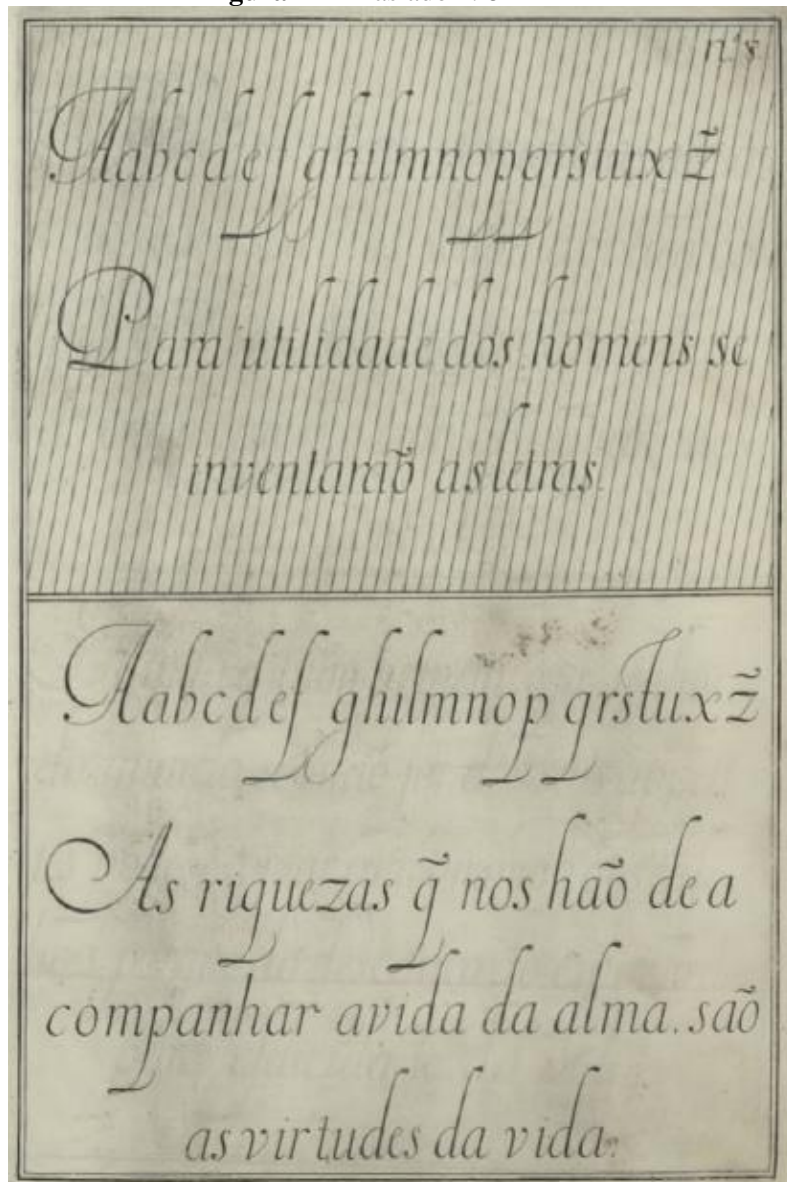 nº 8
Aabcdefghilmnopqrstux z̃
Para utilidade dos homens se
inventaraõ as letras.
Aabcdefghilmnop qrstux z̃
As riquezas q̃ nos haõ de a
companhar avida da alma. saõ
as virtudes da vida